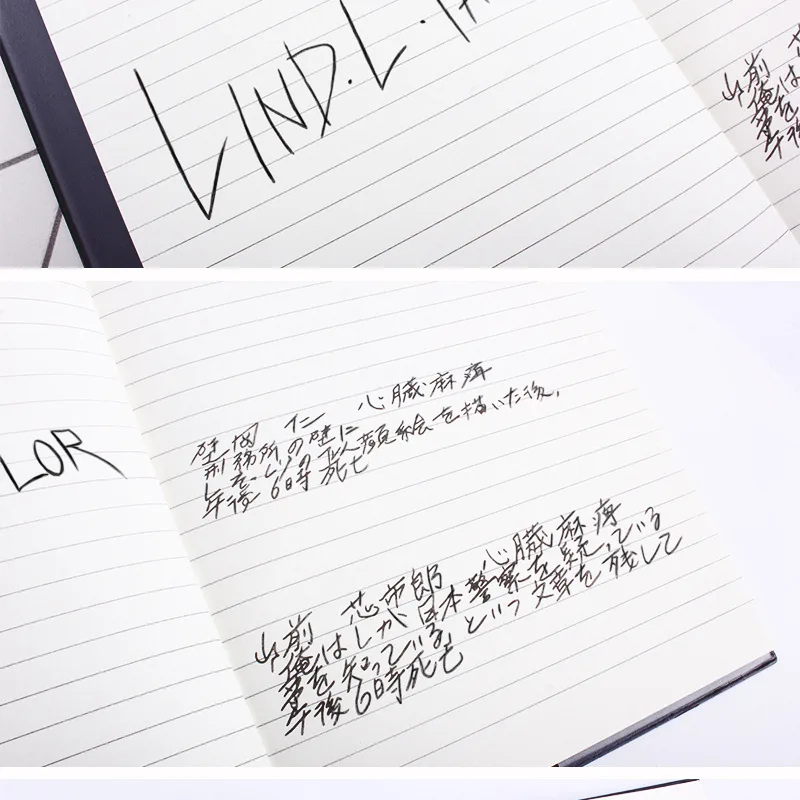 LIND.L.TA
山前 芯
俺は
事を
午後
LOR
仁 心臓麻痺
刑務所の壁に
顔絵を描いた後,
午後6時死亡
山前 芯市郎 心臓麻痺
俺はLが日本警察を疑っている
事を知っている,という文章を残して
午後6時死亡